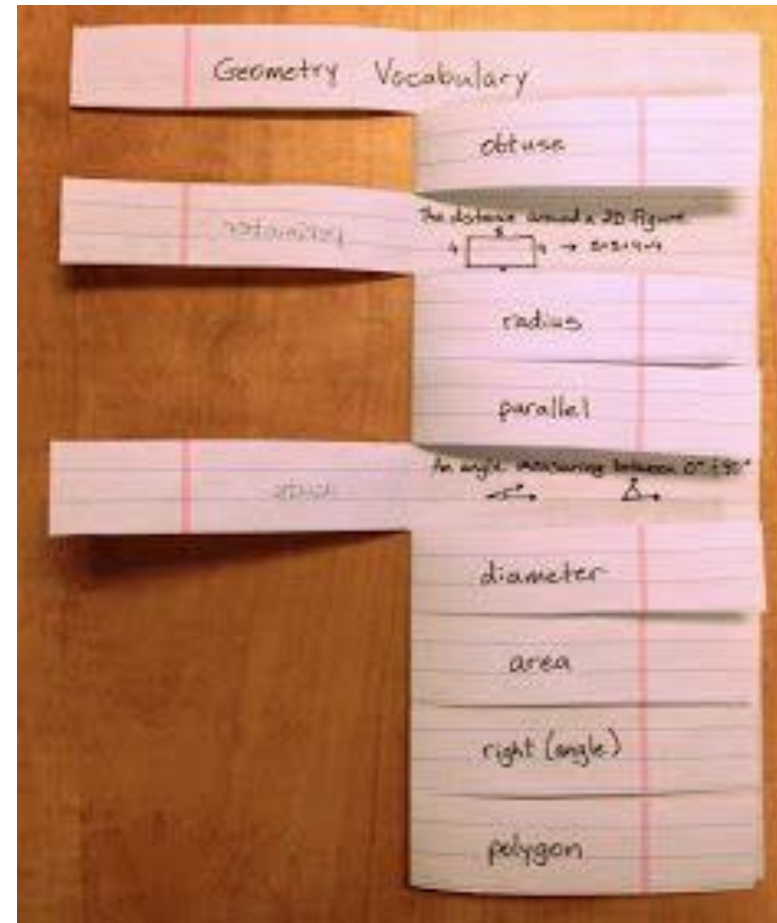 Geometry Vocabulary
obtuse
perimeter
The distance around a 2D Figure
5
4 4 → 5+5+4+4
radius
parallel
An angle measuring between 0° & 90°
acute
diameter
area
right (angle)
polygon